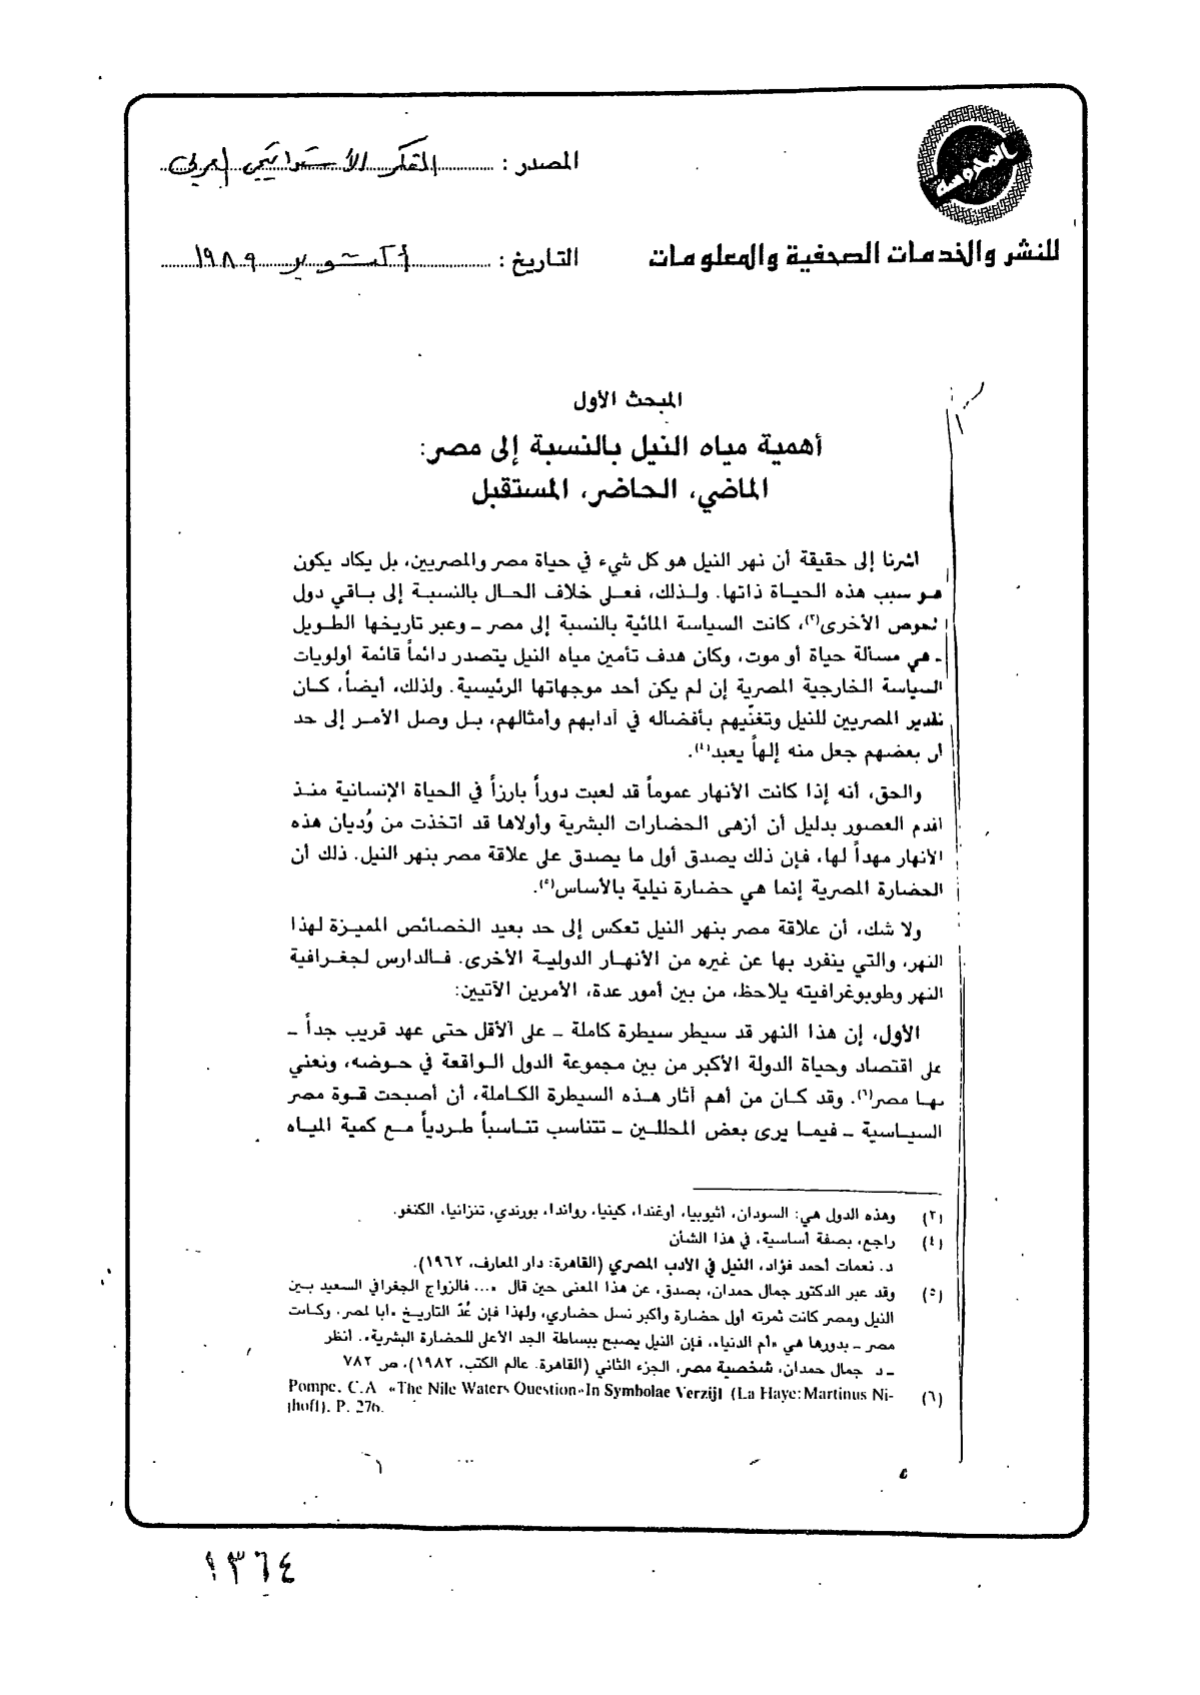 بالمحروسة
المصدر : المفكر الأستراتيجي العربي
للنشر والخدمات الصحفية والمعلومات
التاريخ : أكتوبر ١٩٨٩
المبحث الأول
أهمية مياه النيل بالنسبة إلى مصر:
الماضي، الحاضر، المستقبل
اشرنا إلى حقيقة أن نهر النيل هو كل شيء في حياة مصر والمصريين، بل يكاد يكون
هو سبب هذه الحياة ذاتها. ولذلك، فعلى خلاف الحال بالنسبة إلى باقي دول
الحوض الأخرى(٣)، كانت السياسة المائية بالنسبة إلى مصر ــ وعبر تاريخها الطويل
ــ هي مسألة حياة أو موت، وكان هدف تأمين مياه النيل يتصدر دائماً قائمة أولويات
السياسة الخارجية المصرية إن لم يكن أحد موجهاتها الرئيسية. ولذلك، أيضاً، كان
تقدير المصريين للنيل وتغنّيهم بأفضاله في آدابهم وأمثالهم، بل وصل الأمر إلى حد
أن بعضهم جعل منه إلهاً يعبد(٤).
والحق، أنه إذا كانت الأنهار عموماً قد لعبت دوراً بارزاً في الحياة الإنسانية منذ
اقدم العصور بدليل أن أزهى الحضارات البشرية وأولاها قد اتخذت من وُديان هذه
الأنهار مهداً لها، فإن ذلك يصدق أول ما يصدق على علاقة مصر بنهر النيل. ذلك أن
الحضارة المصرية إنما هي حضارة نيلية بالأساس(٥).
ولا شك، أن علاقة مصر بنهر النيل تعكس إلى حد بعيد الخصائص المميزة لهذا
النهر، والتي ينفرد بها عن غيره من الأنهار الدولية الأخرى. فالدارس لجغرافية
النهر وطوبوغرافيته يلاحظ، من بين أمور عدة، الأمرين الآتيين:
الأول، إن هذا النهر قد سيطر سيطرة كاملة ــ على الأقل حتى عهد قريب جداً ــ
على اقتصاد وحياة الدولة الأكبر من بين مجموعة الدول الواقعة في حوضه، ونعني
بها مصر(٦). وقد كان من أهم آثار هذه السيطرة الكاملة، أن أصبحت قوة مصر
السياسية ــ فيما يرى بعض المحللين ــ تتناسب تناسباً طردياً مع كمية المياه
(٣) وهذه الدول هي: السودان، أثيوبيا، أوغندا، كينيا، رواندا، بورندي، تنزانيا، الكنغو.
(٤) راجع، بصفة أساسية، في هذا الشأن
د. نعمات أحمد فؤاد، النيل في الأدب المصري (القاهرة: دار المعارف، ١٩٦٢).
(٥) وقد عبر الدكتور جمال حمدان، بصدق، عن هذا المعنى حين قال «... فالزواج الجغرافي السعيد بين
النيل ومصر كانت ثمرته أول حضارة وأكبر نسل حضاري، ولهذا فإن عُدّ التاريخ «أبا لمصر، وكانت
مصر ــ بدورها هي «أم الدنيا»، فإن النيل يصبح ببساطة الجد الأعلى للحضارة البشرية». أنظر
ــ د جمال حمدان، شخصية مصر، الجزء الثاني (القاهرة. عالم الكتب، ١٩٨٢)، ص ٧٨٢
(٦) Pompe, C.A «The Nile Waters Question» In Symbolae Verzijl (La Haye: Martinus Ni-
jhoff), P. 276.
٤
١٣٦٤